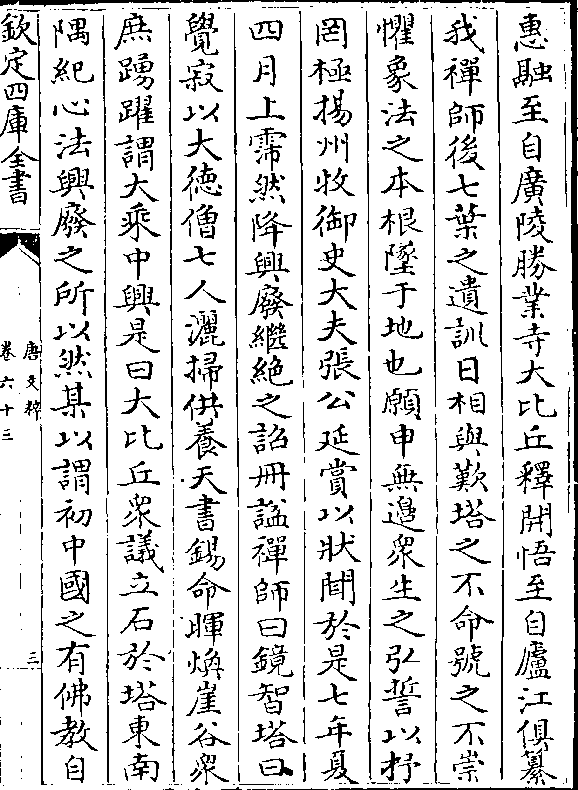 惠融至自廣陵勝業寺大比丘釋開悟至自廬江俱纂
我禪師後七葉之遺訓日相與歎塔之不命號之不崇
懼象法之本根墜于地也願申無邊衆生之弘誓以抒
罔極揚州牧御史大夫張公延賞以狀聞於是七年夏
四月上霈然降興廢繼絶之詔冊諡禪師曰鏡智塔曰
覺寂以大德僧七人灑掃供養天書錫命暉煥崖谷衆
庶踴躍謂大乘中興是曰大比丘衆議立石於塔東南
隅紀心法興廢之所以然某以謂初中國之有佛教自
欽定四庫全書
唐文粹
卷六十三
三